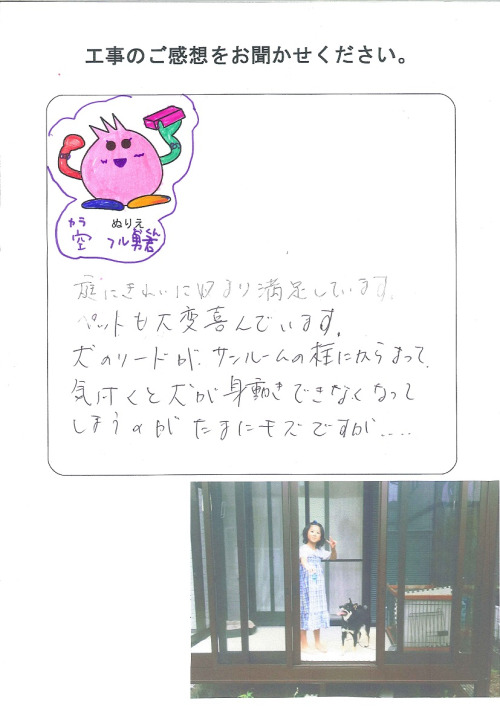 工事のご感想をお聞かせください。
カラ ぬりえ くん
空 フル勇君
庭にきれいに収まり満足しています。
ペットも大変喜んでいます。
犬のリードが、サンルームの柱にからまって、
気付くと犬が身動きできなくなって
しまうのがたまにキズですが....